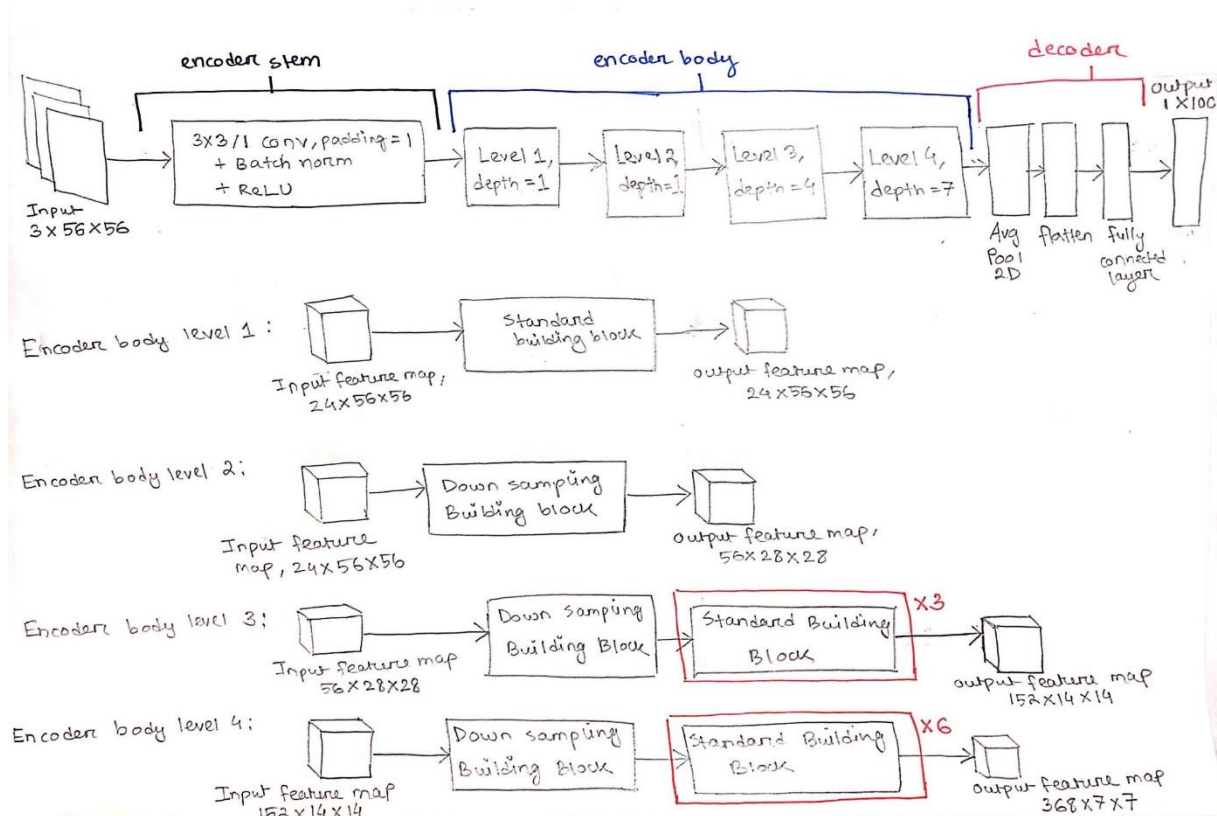 encoder stem
encoder body
decoder
Input
3x56x56
3x3/1 conv, padding=1
+ Batch norm
+ ReLU
Level 1,
depth=1
Level 2,
depth=1
Level 3,
depth=4
Level 4,
depth=7
Avg
Pool
2D
flatten
fully
connected
layer
Output
1x100
Encoder body level 1:
Input feature map,
24x56x56
Standard
building block
output feature map,
24x56x56
Encoder body level 2:
Input feature
map, 24x56x56
Down sampling
Building block
output feature map,
56x28x28
Encoder body level 3:
Input feature map
56x28x28
Down sampling
Building Block
Standard Building
Block
x3
output feature map
152x14x14
Encoder body level 4:
Input feature map
152x14x14
Down sampling
Building Block
Standard Building
Block
x6
output feature map
368x7x7